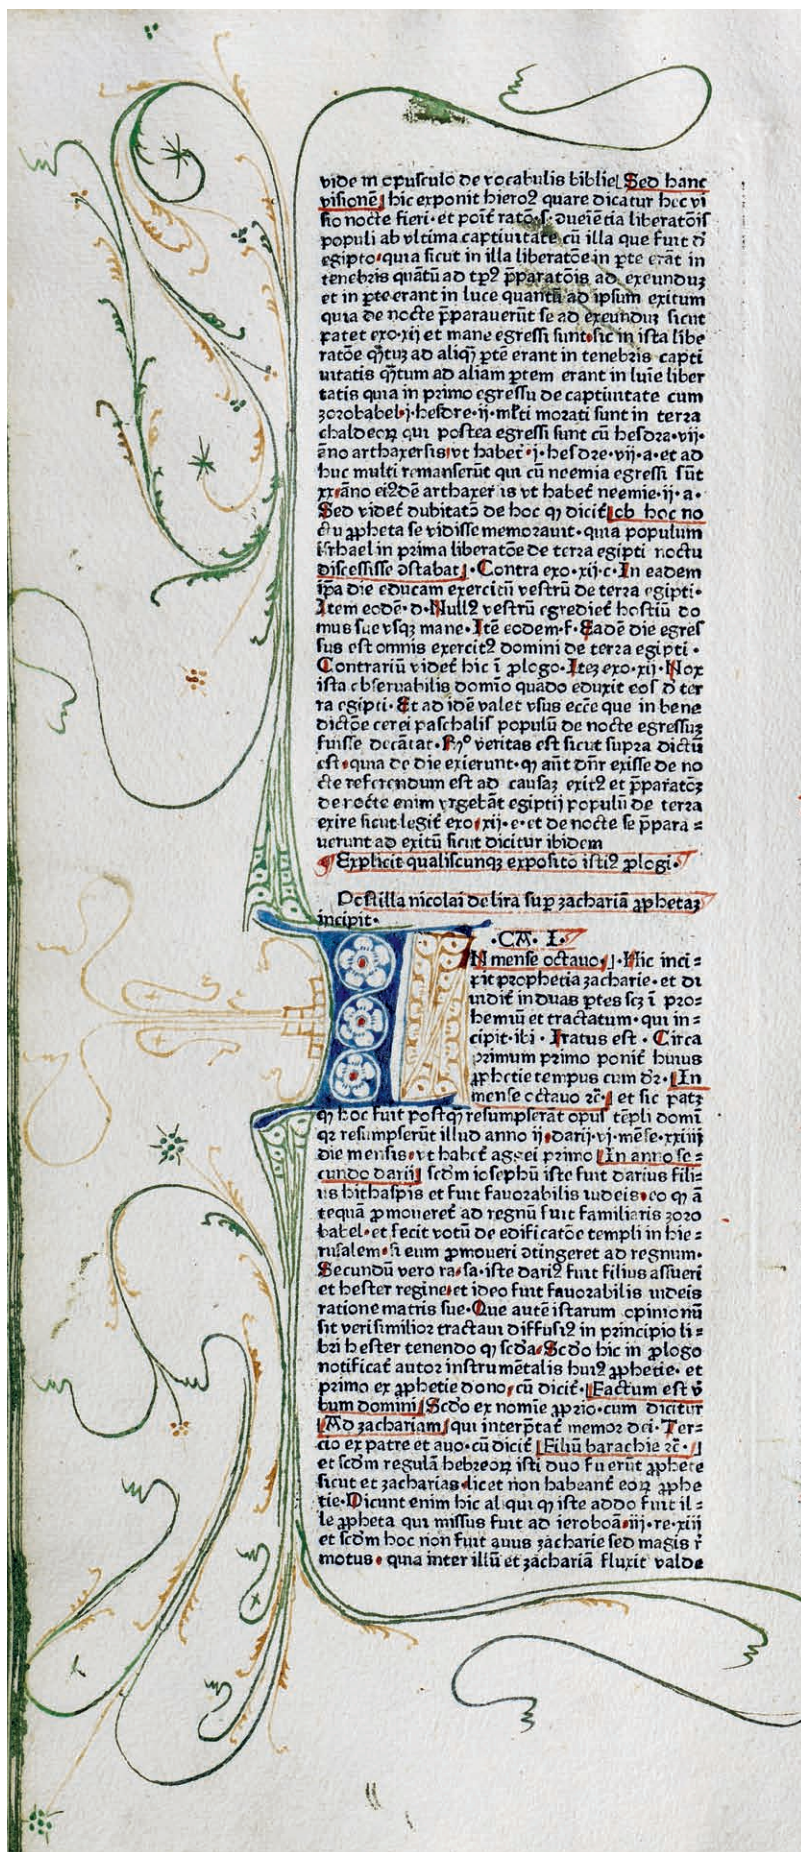 vide in opusculo de vocabulis biblie[ Sed hanc
visionē] hic exponit hieroꝰ quare dicatur hec vi
sio nocte fieri·et poīt
populi ab vltima captiuitate cū illa que fuit d̄
egipto·quia sicut in illa liberatōe in ꝑte erāt in
tenebris quātū ad tꝑꝫ p̄paratōis ad exeunduꝫ
et in ꝑte erant in luce quantū ad ipsum exitum
quia de nocte p̄parauerūt se ad exeunduꝫ sicut
patet exo·xij et mane egressi sunt·sic in ista libe
ratōe q̄ꝫtuꝫ ad aliqꝫ ꝑtē erant in tenebris capti
uitatis q̄ꝫtum ad aliam ꝑtem erant in luīe liber
tatis quia in primo egressu de captiuitate cum
zorobabel·j·hesdre·ij·mĺti morati sunt in terra
chaldeoꝝ qui postea egressi sunt cū hesdra·vij·
āno arthaxersis·vt habet᷑·j·hesdre·vij·a·et ad
huc multi remanserūt qui cū neemia egressi sūt
xx·āno eiꝰdē arthaxer is vt habet᷑ neemie·ij·a·
Sed videt᷑ dubitatō de hoc qꝫ dicit᷑[ob hoc no
ctu ꝓpheta se vidisse memorauit·quia populum
isrhael in prima liberatōe de terra egipti noctu
discessisse ɔstabat]·Contra exo·xij·c·In eadem
ip̄a die educam exercitū vestrū de terra egipti·
Item eodē·d·Nullꝰ vestrū egrediet᷑ hostiū do
mus sue vsqꝫ mane·Itē eodem·f·Eadē die egres
sus est omnis exercitꝰ domini de terra egipti·
Contrariū videt᷑ hic ī ꝓlogo·Iteꝫ exo·xij·Nox
ista obseruabilis domīo quādo eduxit eos d̄ ter
ra egipti·Et ad idē valet vsus ecc̄e que in bene
dictōe cerei paschalis populū de nocte egressuꝫ
fuisse decātat·R̄º veritas est sicut supra dictū
est·quia de die exierunt·qꝫ aūt dn̄r exisse de no
cte referendum est ad causaꝫ exitꝰ et p̄paratōꝫ
de nocte enim vrgebāt egiptij populū de terra
exire sicut legit᷑ exo·xij·e·et de nocte se p̄para =
uerunt ad exitū sicut dicitur ibidem
¶ Explicit qualiscunqꝫ exposito istiꝰ ꝓlogi·
Postilla nicolai de lira suꝑ zachariā ꝓphetaꝫ
incipit·
·CA·I·
IN mense octauo·]·Hic inci=
pit prophetia zacharie·et di
uidit᷑ in duas ꝑtes scꝫ ī pro=
hemiū et tractatum·qui in=
cipit·ibi·Iratus est·Circa
primum primo ponit᷑ huius
ꝓphetie tempus cum dr̄·[In
mense octauo ꝛc̄·] et sic patꝫ
qꝫ hoc fuit postqꝫ resumpserāt opus tēpli domī
qꝛ resumpserūt illud anno ij·darij·vj·mēse·xxiiij
die mensis·vt habet᷑ aggei primo [In anno se=
cundo darij] scd̄m iosephū iste fuit darius fili=
us hithaspis et fuit fauorabilis iudeis·eo qꝫ ā
tequā ꝓmoueret᷑ ad regnū fuit familiaris zoro
babel·et fecit votū de edificatōe templi in hie=
rusalem·si eum ꝓmoueri ɔtingeret ad regnum·
Secundū vero ra·sa·iste dariꝰ fuit filius assueri
et hester regine·et ideo fuit fauorabilis iudeis
ratione matris sue·Que autē istarum opinionū
sit verisimilior tractaui diffusiꝰ in principio li=
bri hester tenendo qꝫ scd̄a·Scd̄o hic in ꝓlogo
notificat᷑ autor instrumētalis huiꝰ ꝓphetie·et
primo ex ꝓphetie dono·cū dicit᷑·[Factum est v̄
bum domini] Scd̄o ex nomīe ꝓprio·cum dicitur
[Ad zachariam] qui interp̄tat᷑ memor dei·Ter=
cio ex patre et auo·cū dicit᷑ [Filiū barachie ꝛc̄·]
et scd̄m regulā hebreoꝝ isti duo fuerūt ꝓphete
sicut et zacharias·licet non habeant᷑ eoꝝ ꝓphe
tie·Dicunt enim hic aliqui qꝫ iste addo fuit il=
le ꝓpheta qui missus fuit ad ieroboā·iij·re·xiij
et scd̄m hoc non fuit auus zacharie sed magis r̄
motus·quia inter illū et zachariā fluxit valde